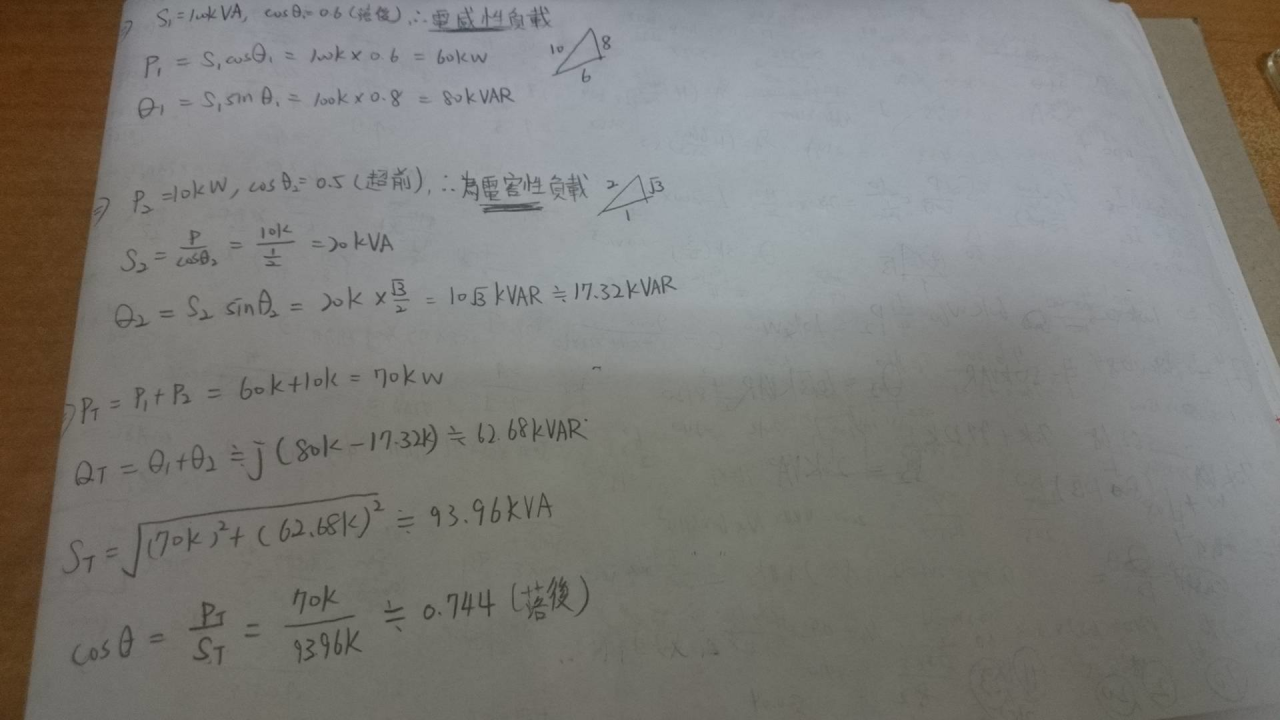 ⇒ S₁=100kVA, cosθ₁=0.6(落後), ∴電感性負載
P₁ = S₁cosθ₁ = 100k×0.6 = 60kW
10 8 6
Q₁ = S₁sinθ₁ = 100k×0.8 = 80kVAR
⇒ P₂=10kW, cosθ₂=0.5(超前), ∴為電容性負載
2 √3 1
S₂ = P/cosθ₂ = 10k/(1/2) = 20kVA
Q₂ = S₂ sinθ₂ = 20k × √3/2 = 10√3 kVAR ≒ 17.32kVAR
⇒ P_T = P₁+P₂ = 60k+10k = 70kW
Q_T = Q₁+Q₂ ≒ j(80k-17.32k) ≒ 62.68kVAR
S_T = √((70k)²+(62.68k)²) ≒ 93.96kVA
cosθ = P_T/S_T = 70k/9396k ≒ 0.744(落後)